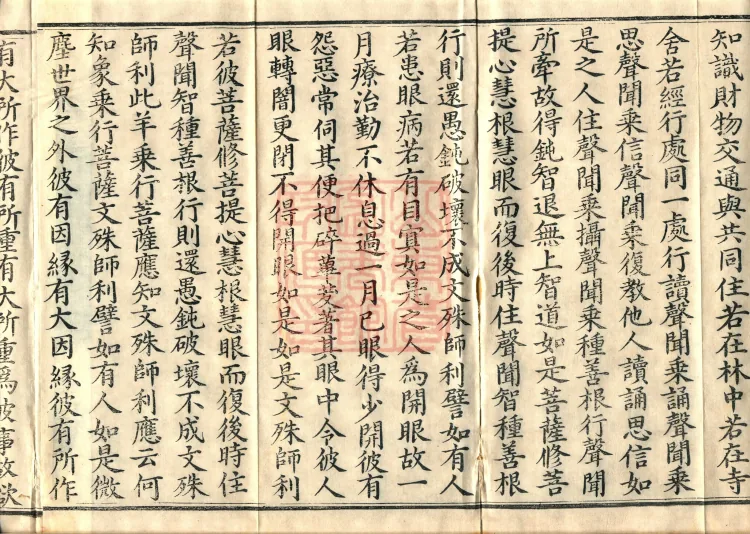 知識財物交通與共同住若在林中若在寺
舍若經行處同一處行讀聲聞乘誦聲聞乘
思聲聞乘信聲聞乘復教他人讀誦思信如
是之人住聲聞乘攝聲聞乘種善根行聲聞
所牽故得鈍智退無上智道如是菩薩修菩
提心慧根慧眼而復後時住聲聞智種善根
行則還愚鈍破壞不成文殊師利譬如有人
若患眼病若有目㝠如是之人為開眼故一
月療治勤不休息過一月已眼得少開彼有
怨惡常伺其便把碎蓽茇著其眼中令彼人
眼轉闇更閉不得開眼如是如是文殊師利
若彼菩薩修菩提心慧根慧眼而復後時住
聲聞智種善根行則還愚鈍破壞不成文殊
師利此羊乘行菩薩應知文殊師利應云何
知象乘行菩薩文殊師利譬如有人如是微
塵世界之外彼有因緣有大因緣彼有所作
有大所作彼有所重有大所重為彼事故欲